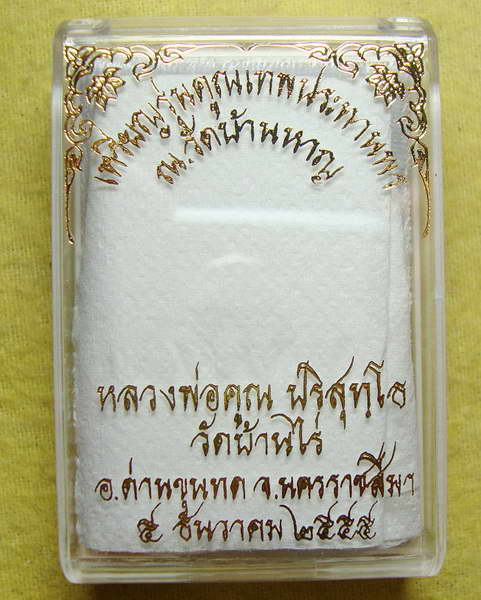 เหรียญรุ่นคูณเทพประทานพร
ณ.วัดบ้านหาญ
หลวงพ่อคูณ ปริสุทฺโธ
วัดบ้านไร่
อ.ด่านขุนทด จ.นครราชสีมา
๕ ธันวาคม ๒๕๕๕